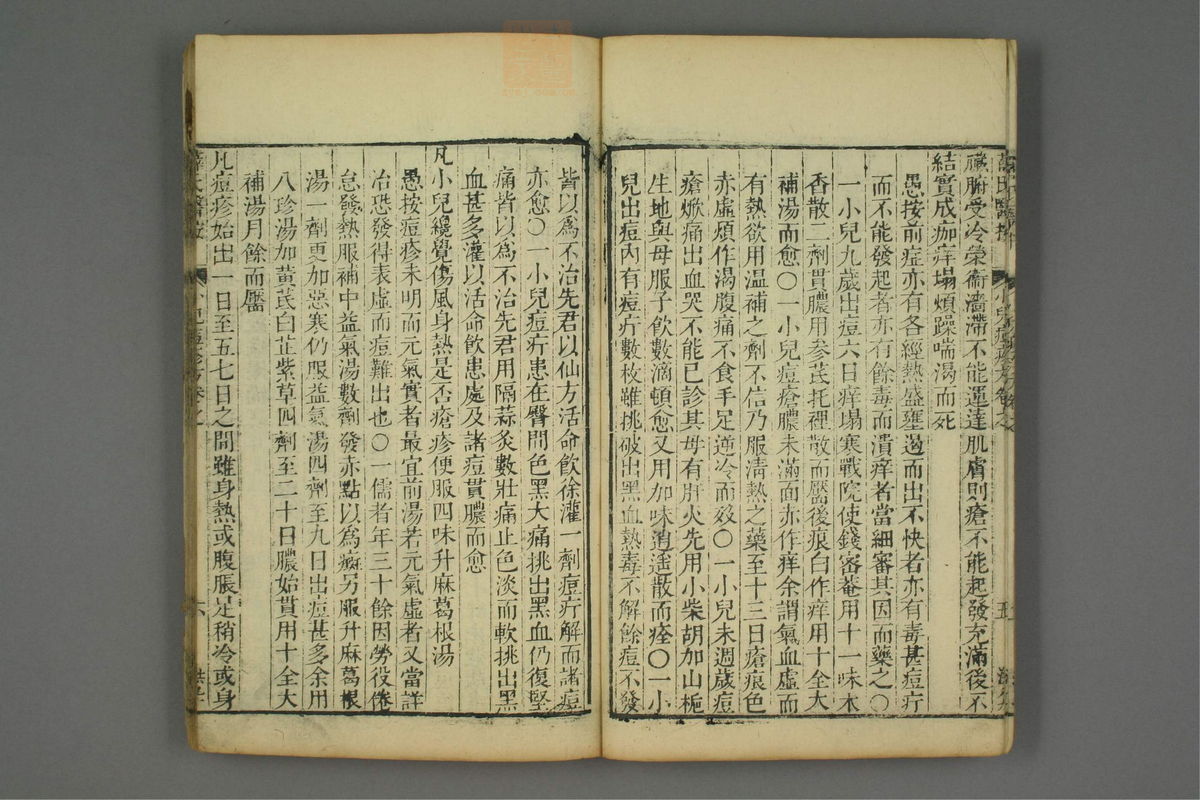 臟腑受冷榮衞濇滯不能運達肌膚則瘡不能起發充滿後不
結實成痂痒塌煩躁喘渴而死
愚按前症亦有各經熱盛壅遏而出不快者亦有毒甚痘疔
而不能發起者亦有餘毒而潰痒者當細審其因而藥之〇
一小兒九歲出痘六日痒塌寒戰院使錢審菴用十一味木
香散二劑貫膿用參芪托裡散而靨後痕白作痒用十全大
補湯而愈〇一小兒痘瘡膿未滿面赤作痒余謂氣血虛而
有熱欲用温補之劑不信乃服淸熱之藥至十三日瘡痕色
赤虛煩作渴腹痛不食手足逆冷而歿〇一小兒未週歲痘
瘡焮痛出血哭不能已診其母有肝火先用小柴胡加山梔
生地與母服子飮數滴頓愈又用加味逍遥散而痊〇一小
兒出痘內有痘疔數枚雖挑破出黑血熱毒不解餘痘不發
皆以爲不治先君以仙方活命飮徐灌一劑痘疔解而諸痘
亦愈〇一小兒痘疔患在臀間色黑大痛挑出黑血仍復堅
痛皆以爲不治先君用隔蒜灸數壯痛止色淡而軟挑出黑
血甚多灌以活命飮患處及諸痘貫膿而愈
凡小兒纔覺傷風身熱是否瘡疹便服四味升麻葛根湯
愚按痘疹未明而元氣實者最宜前湯若元氣虛者又當詳
冶恐發得表虛而痘難出也〇一儒者年三十餘因勞役倦
怠發熱服補中益氣湯數劑發赤點以爲癍另服升麻葛根
湯一劑更加惡寒仍服益氣湯四劑至九日出痘甚多余用
八珍湯加黃芪白芷紫草四劑至二十日膿始貫用十全大
補湯月餘而靨
凡痘疹始出一日至五七日之間雖身熱或腹脹足稍冷或身